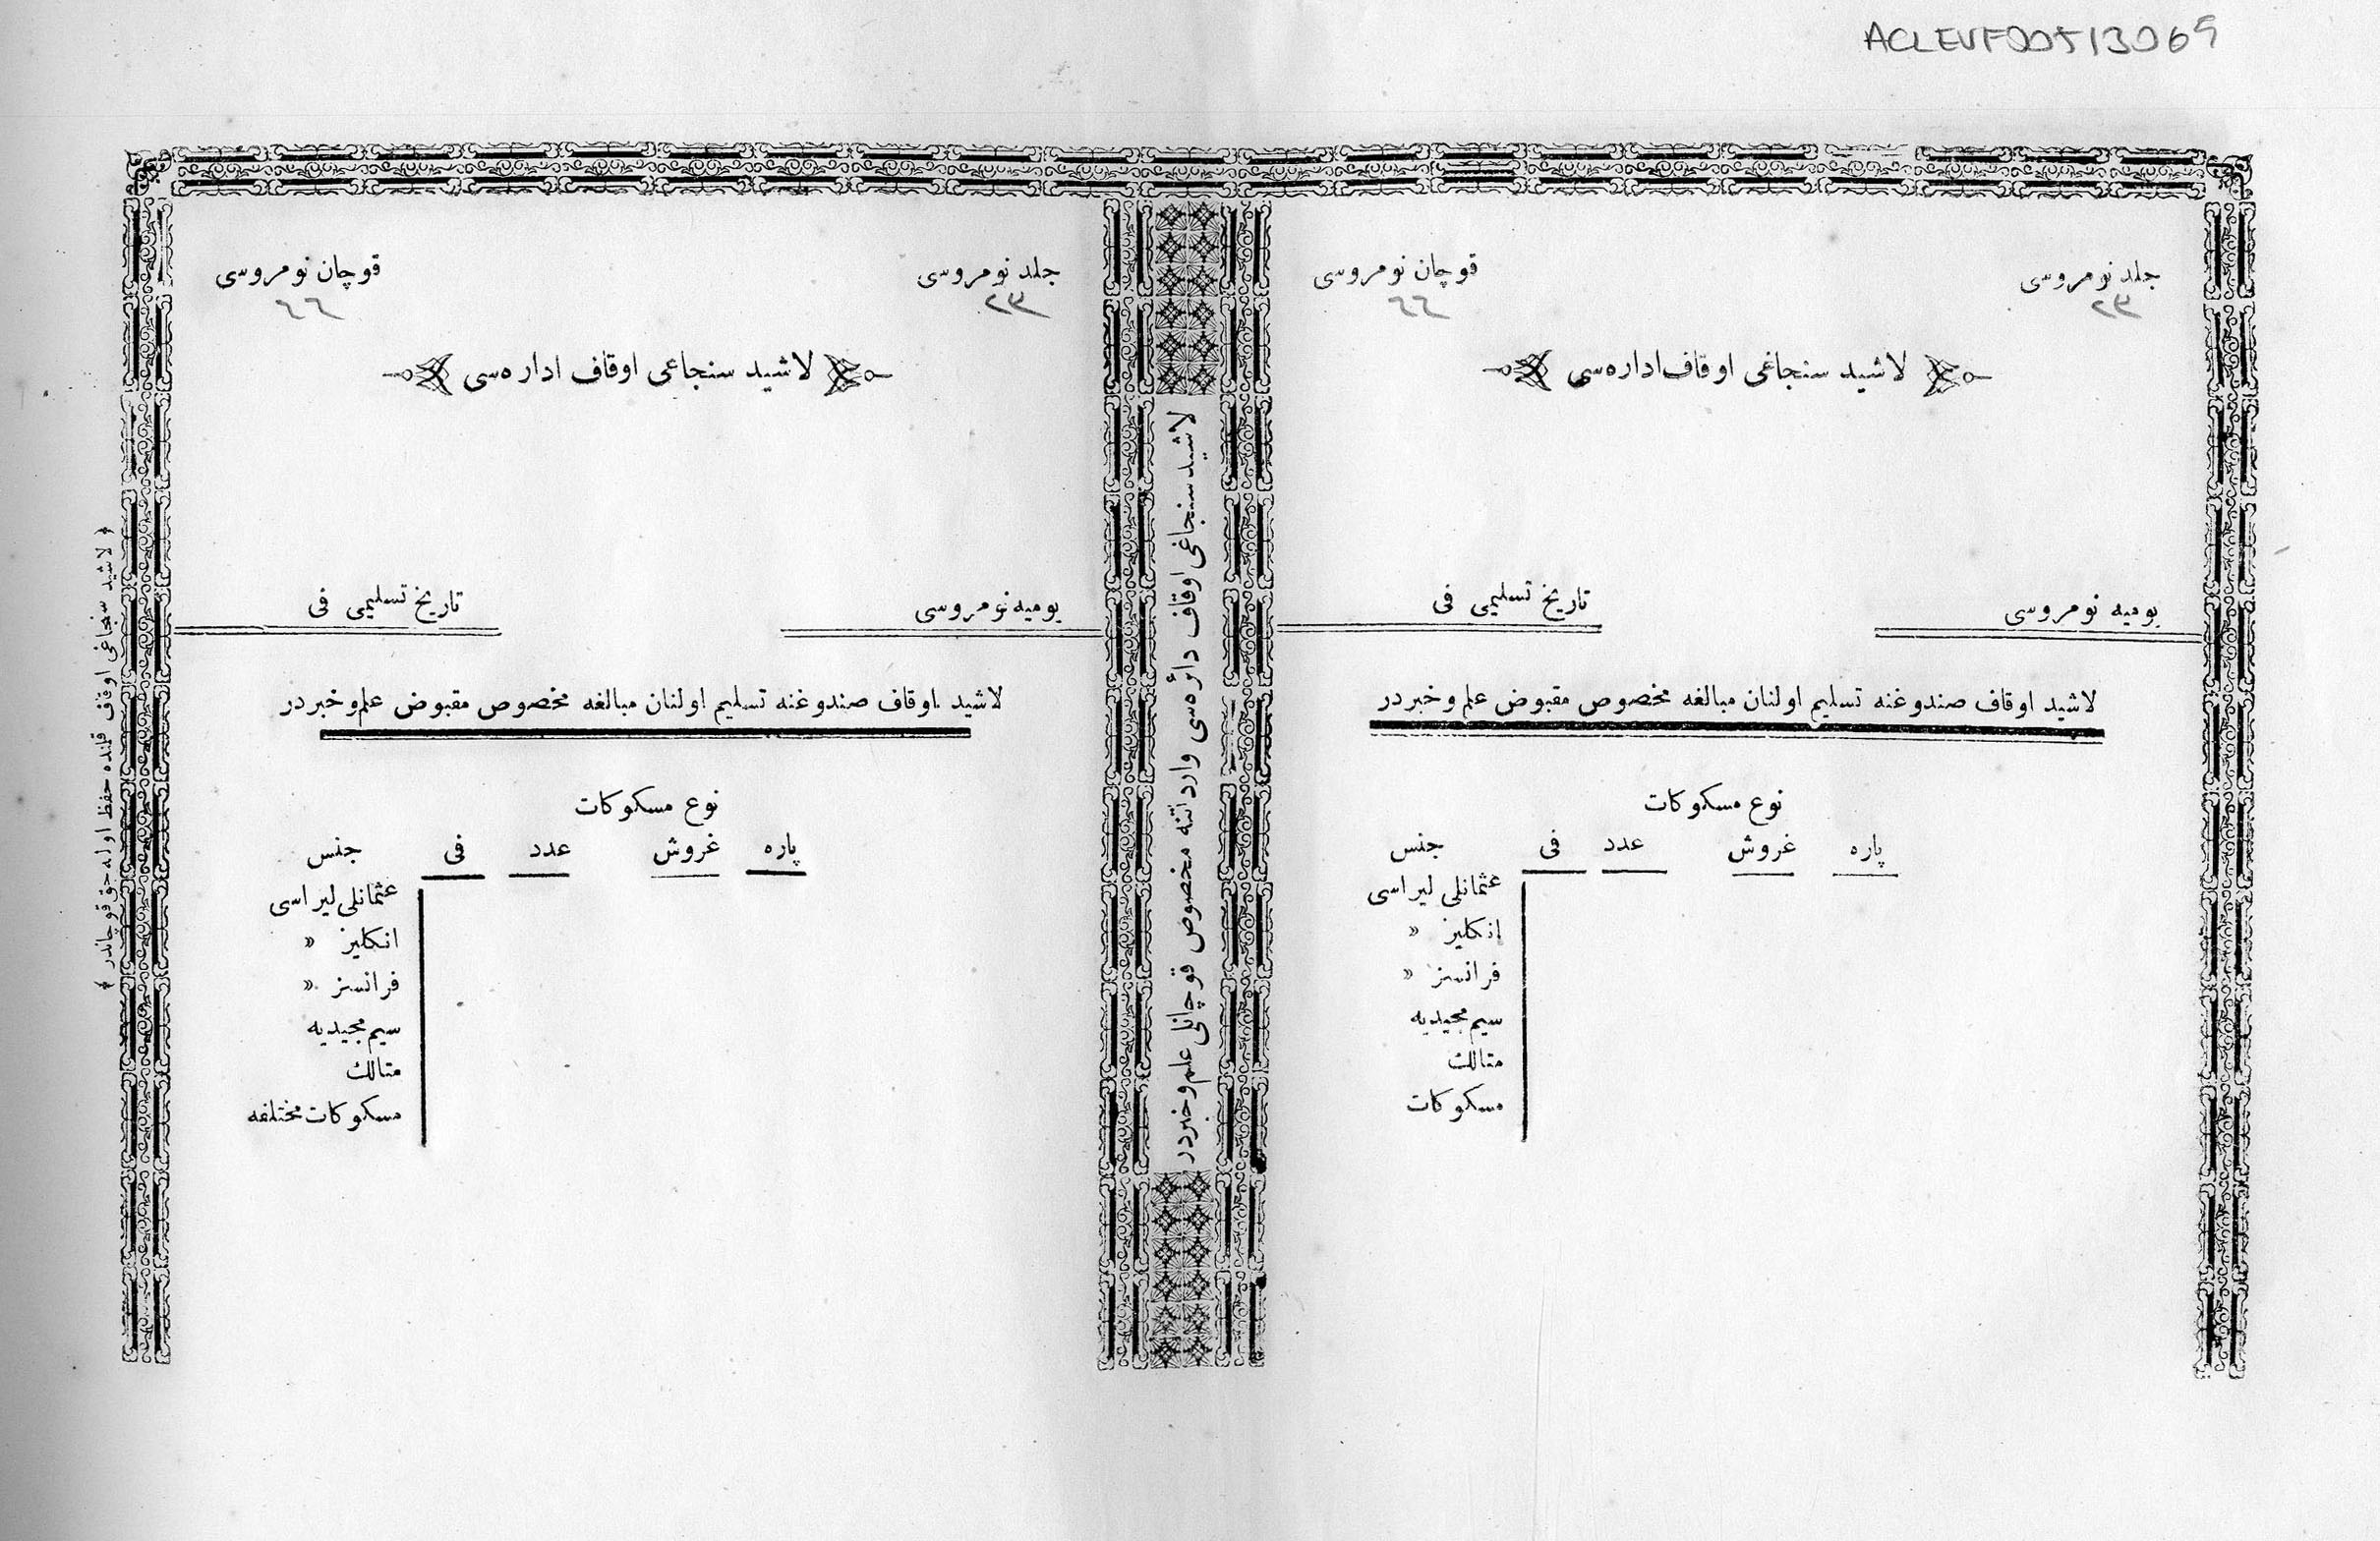 ACLEVF00513069
جلد نومروسی
٢٣
قوچان نومروسی
٦٦
لاشید سنجاغی اوقاف اداره‌سی
یومیه نومروسی
تاریخ تسلیمی فی
لاشید اوقاف صندوغنه تسلیم اولنان مبالغه مخصوص مقبوض علم وخبردر
نوع مسكوكات
پاره غروش عدد فی جنس
عثمانلی لیراسی
انكلیز »
فرانسز »
سیم مجیدیه
متالك
مسكوكات
لاشید سنجاغی اوقاف دائره‌سی وارداتنه مخصوص قوچانلی علم وخبردر
جلد نومروسی
٢٣
قوچان نومروسی
٦٦
لاشید سنجاغی اوقاف اداره‌سی
یومیه نومروسی
تاریخ تسلیمی فی
لاشید اوقاف صندوغنه تسلیم اولنان مبالغه مخصوص مقبوض علم وخبردر
نوع مسكوكات
پاره غروش عدد فی جنس
عثمانلی لیراسی
انكلیز »
فرانسز »
سیم مجیدیه
متالك
مسكوكات مختلفه
﴿ لاشید سنجاغی اوقاف قلمنده حفظ اوله‌جق قوچاندر ﴾